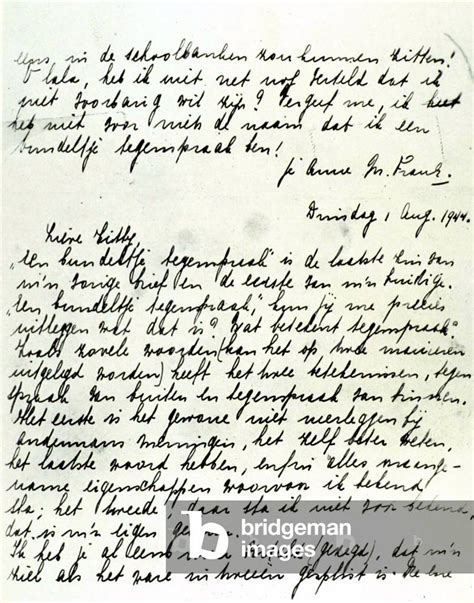 eens in de schoolbanken zou kunnen zitten!
O lala, heb ik niet net nog verteld dat ik
niet voorbarig wil zijn? Vergeef me, ik heet
heb niet voor niets de naam dat ik een
bundeltje tegenspraak ben!
je Anne M. Frank.
Dinsdag, 1 Aug. 1944.
Lieve Kitty,
„Een bundeltje tegenspraak” is de laatste zin van
m'n vorige brief en de eerste van m'n huidige.
„Een bundeltje tegenspraak”, kun jij me precies
uitleggen wat dat is? Wat betekent tegenspraak?
Zoals zovele woorden (kan het op twee manieren
uitgelegd worden) heeft het twee betekenissen, tegen
spraak van buiten en tegenspraak van binnen.
Het eerste is het gewone niet neerleggen bij
andermans meningen, het zelf beter weten,
het laatste woord hebben, enfin alles onaange-
name eigenschappen waarvoor ik bekend
sta; het tweede, daar sta ik niet voor bekend,
dat is m'n eigen
Ik heb je al eens gezegd), dat m'n
ziel als het ware in tweeën gesplitst is. De ene
b bridgeman
images